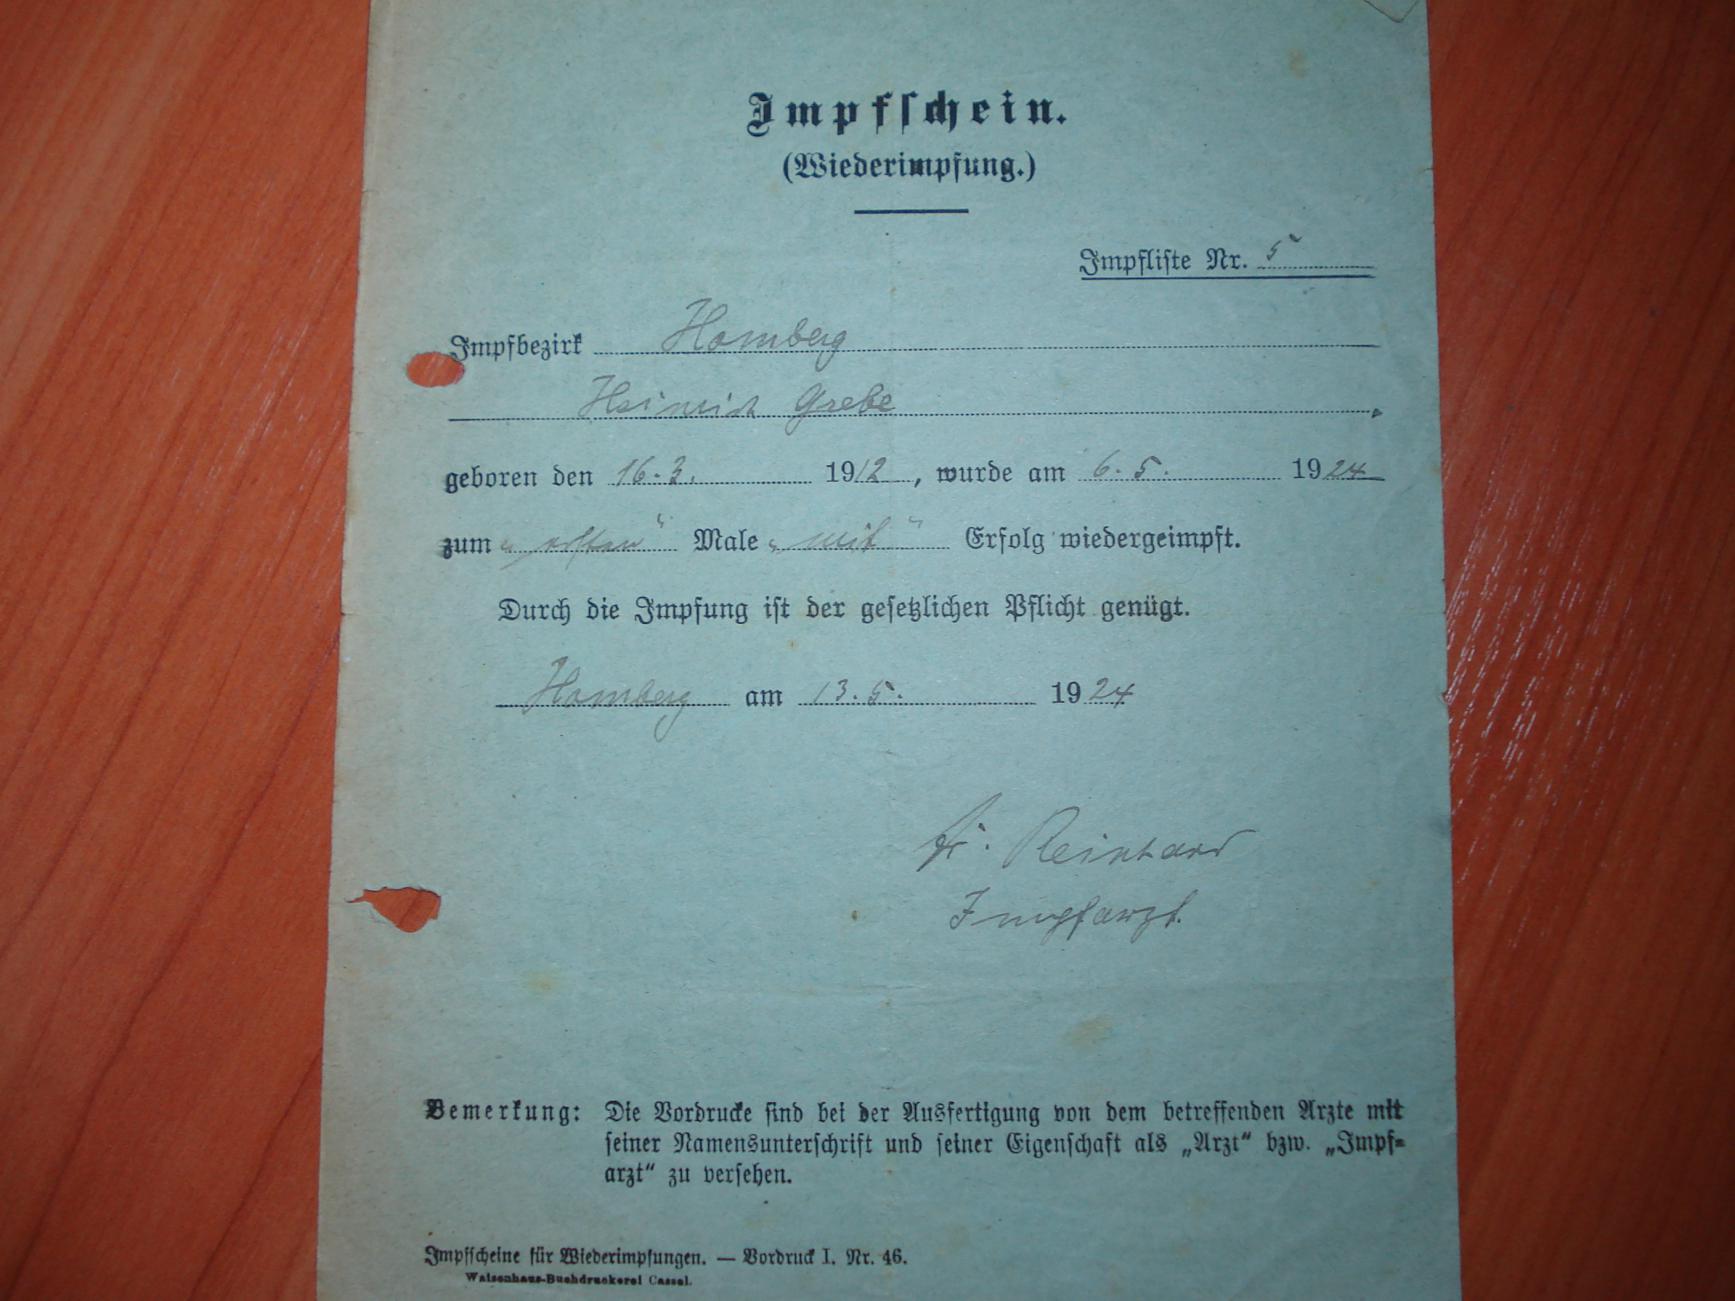 Impfschein.
(Wiederimpfung.)
Impfliste Nr. 5
Impfbezirk Homberg
Heinrich Grebe,
geboren den 16.3. 1912, wurde am 6.5. 1924
zum „ersten" Male „mit" Erfolg wiedergeimpft.
Durch die Impfung ist der gesetzlichen Pflicht genügt.
Homberg am 13.5. 1924
Reinhard
Impfarzt.
Bemerkung: Die Vordrucke sind bei der Ausfertigung von dem betreffenden Arzte mit
seiner Namensunterschrift und seiner Eigenschaft als „Arzt“ bzw. „Impf-
arzt“ zu versehen.
Impfscheine für Wiederimpfungen. — Vordruck I. Nr. 46.
Waisenhaus-Buchdruckerei Cassel.